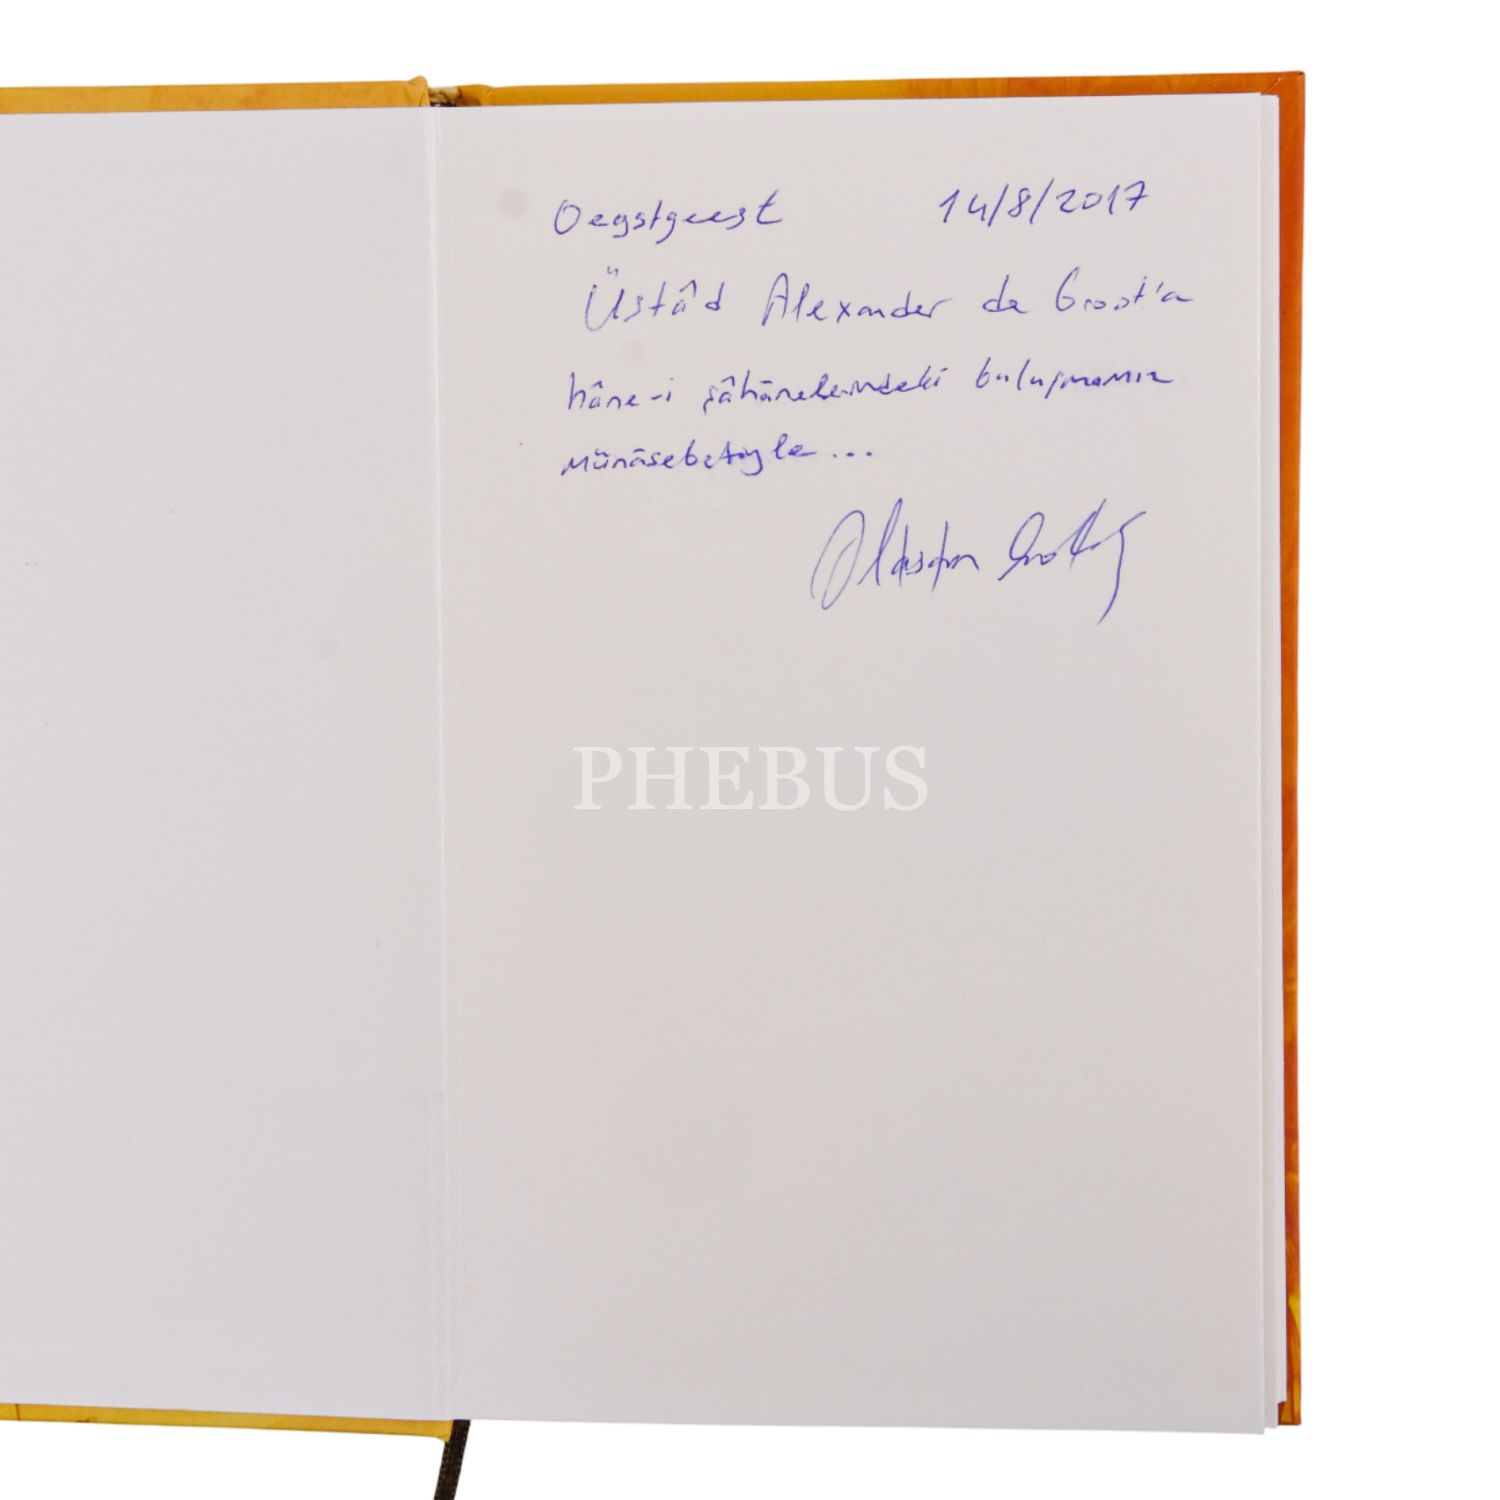 Oegstgeest 14/8/2017
Üstâd Alexander de Groot'a
hâne-i şâhânelerindeki buluşmamız
münâsebetiyle...
PHEBUS